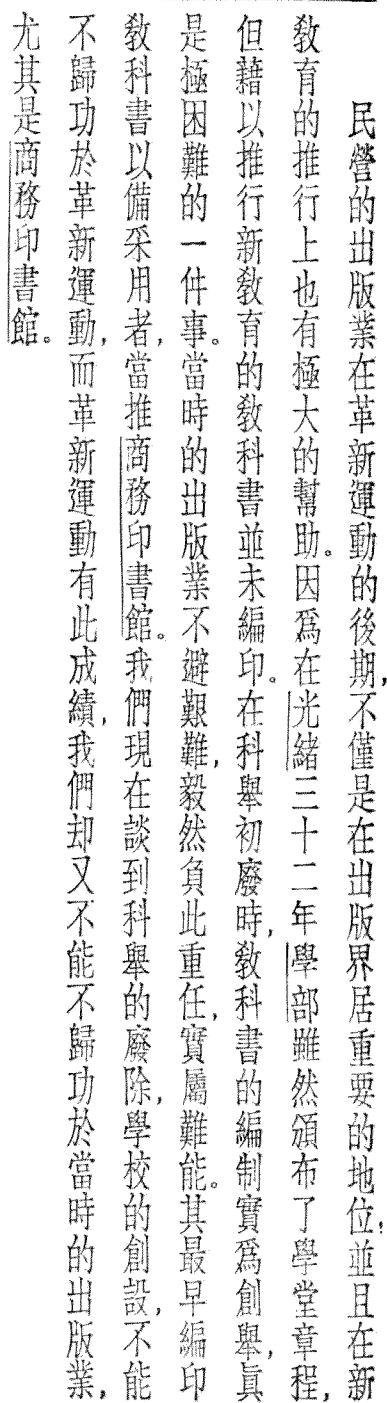 民營的出版業在革新運動的後期，不僅是在出版界居重要的地位；並且在新
敎育的推行上也有極大的幫助。因爲在光緒三十二年學部雖然頒布了學堂章程，
但藉以推行新敎育的敎科書並未編印。在科舉初廢時，敎科書的編制實爲創舉，眞
是極困難的一件事。當時的出版業不避艱難，毅然負此重任，實屬難能。其最早編印
敎科書以備采用者，當推商務印書館。我們現在談到科舉的廢除，學校的創設，不能
不歸功於革新運動，而革新運動有此成績，我們却又不能不歸功於當時的出版業，
尤其是商務印書館。